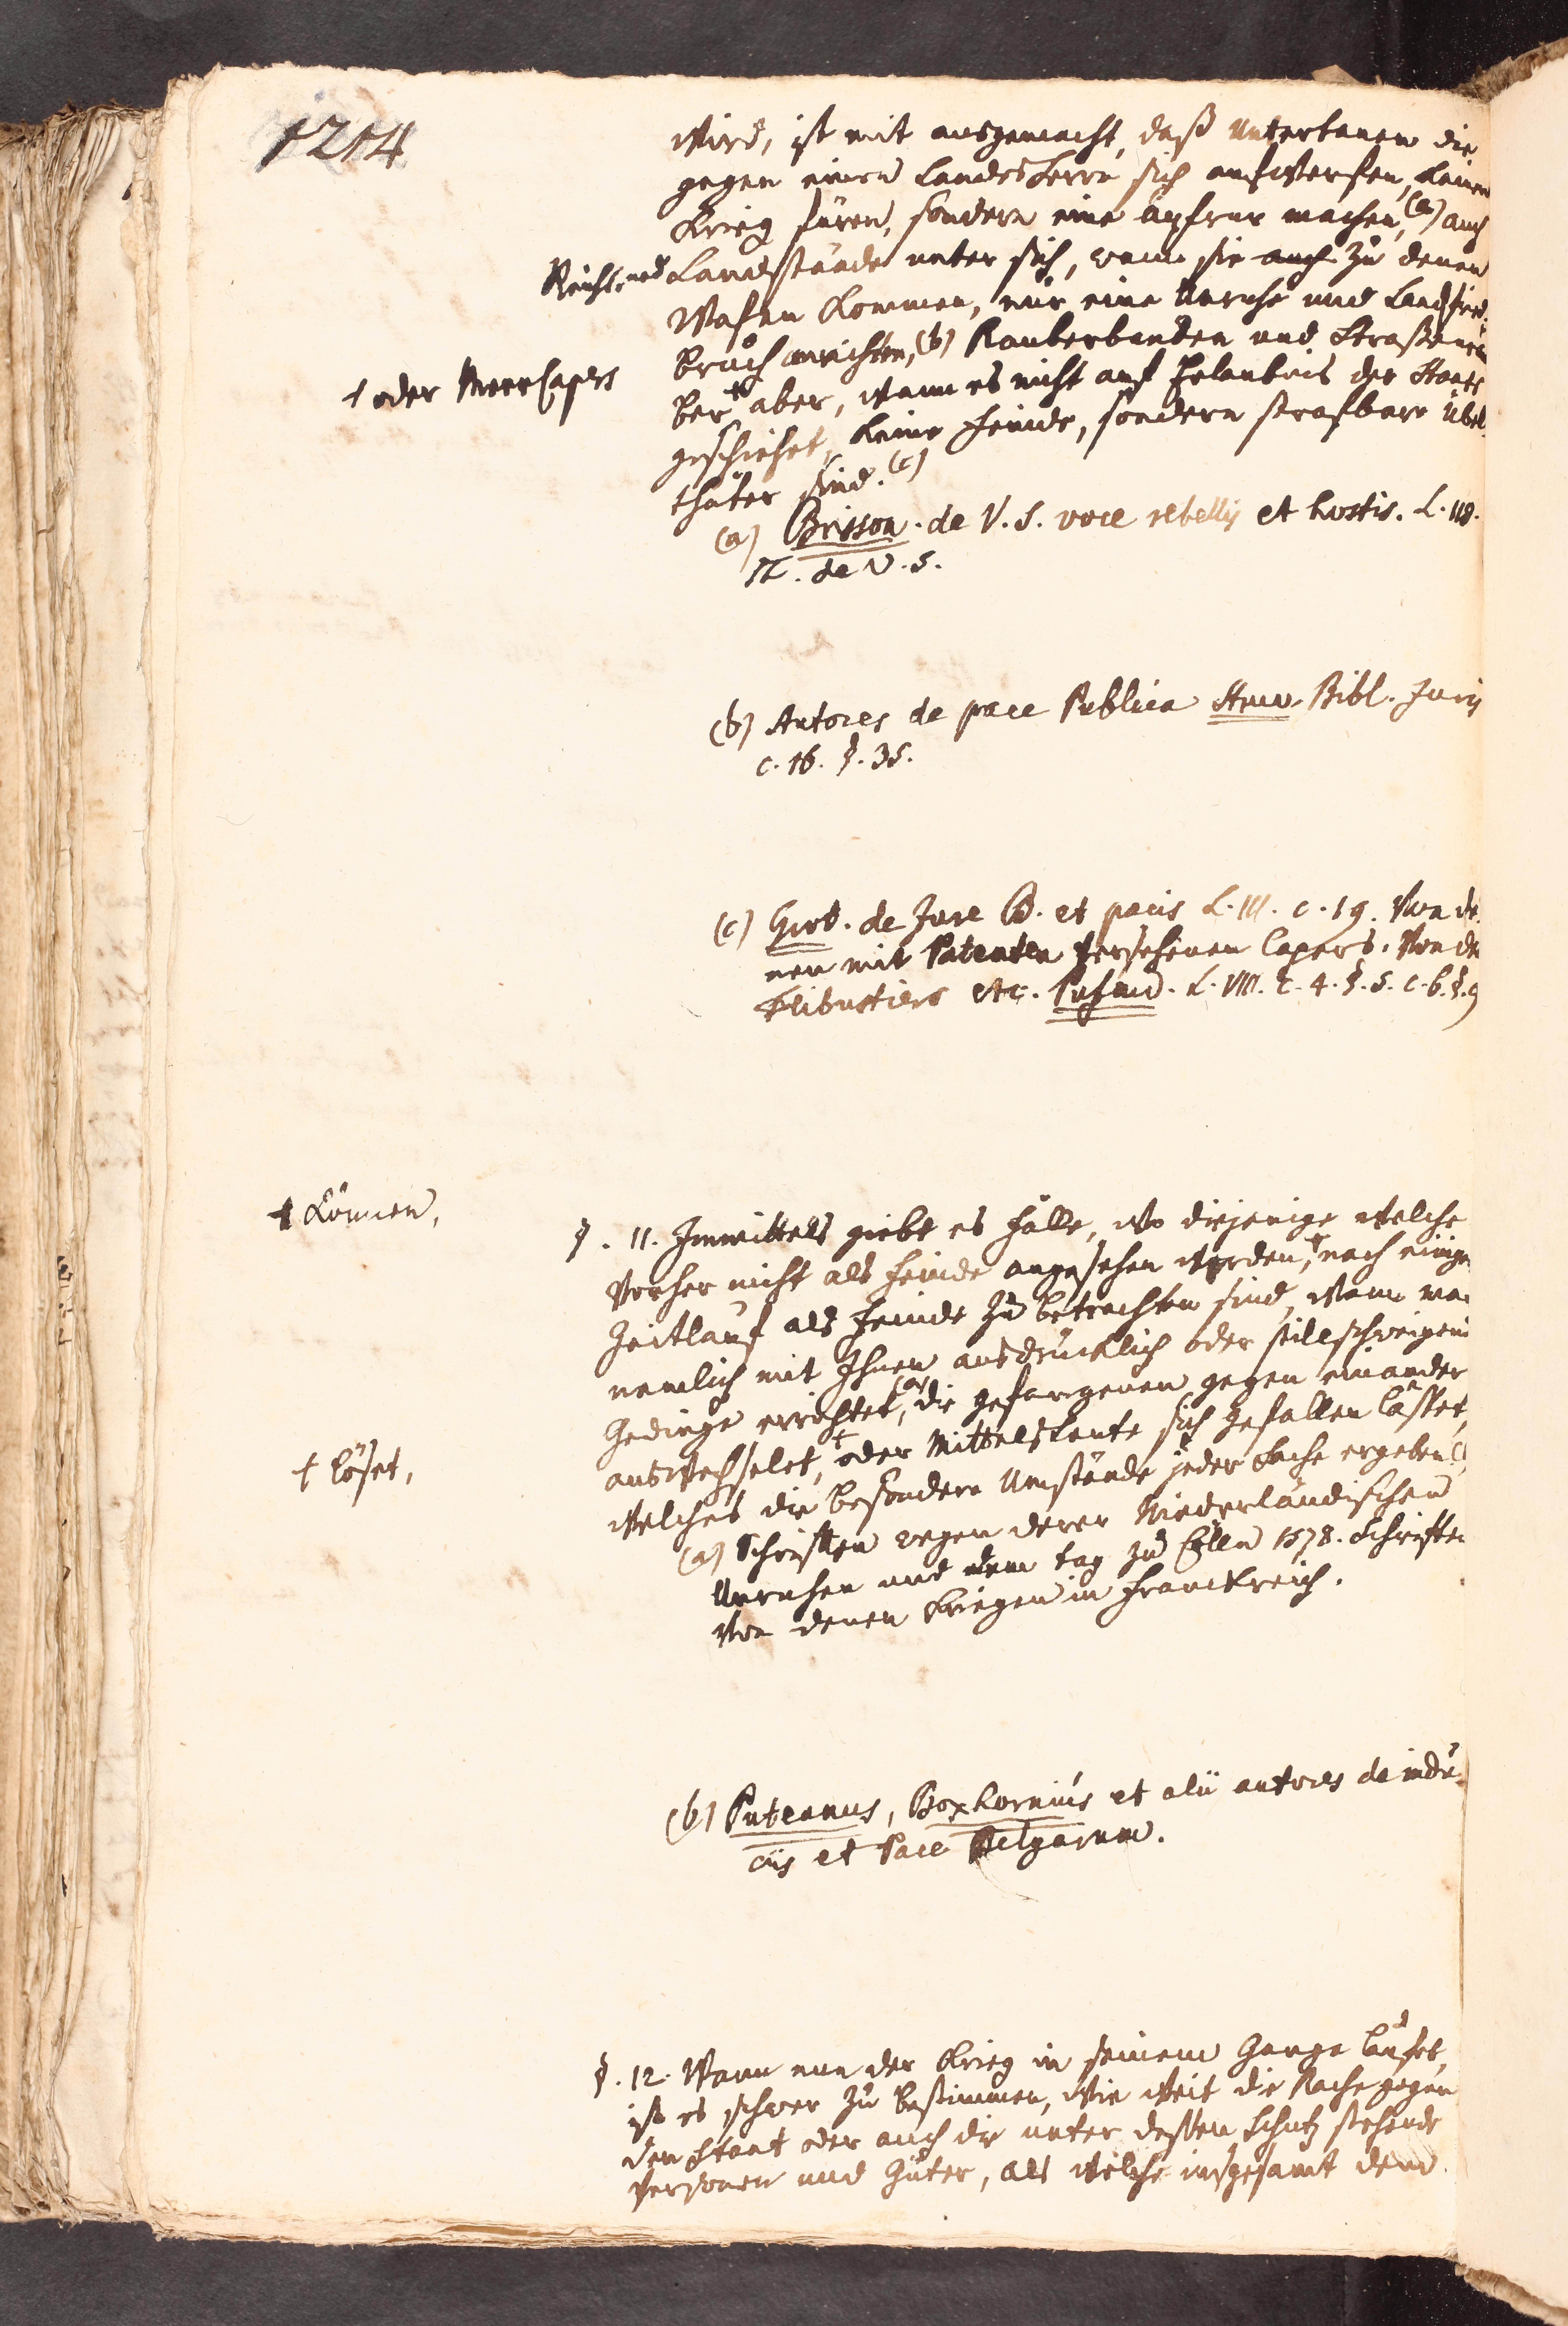 1214
wird, ist mit ausgemacht, daß Untertanen die
gegen einen Landsherrn sich aufwerfen, keinen
Krieg füren, sondern eine aufrur machen, (a) auch
Reichs und Landstände unter sich, wann sie auch zu denen
Wafen kommen, nur eine Unruhe und Landfrid
bruch anrichten, (b) Rauberbanden und Straßenräu
† oder MeerCapers
ber † aber, wann es nicht auf Erlaubnis des Staats
geschiehet, keine Feinde, sondern strafbare Übel
thäter sind. (c)
(a) Brisson. de V. S. voce rebellis et hostis. L. 118.
π. de V. S.
(b) Autores de pace Publica Struv. Bibl. Juris
c. 16. §. 35.
(c) Grot. de Jure B. et pacis L. III. c. 19. Von de
nen mit Patenten versehenen Capers. Von de
Flibustiers etc. Pufend. L. VIII. c. 4. §. 5. c. 6. §. 9
† können,
§. 11. Immittels giebt es Fälle, wo diejenige welche
vorher nicht als Feinde angesehen werden, † nach einige
Zeitlauf als Feinde zu betrachten sind, wann ma
nemlich mit Ihnen ausdrücklich oder stillschweigend
Gedinge errichtet, (a) die gefangenen gegen einander
† löset,
auswechselet, † oder Mittelsleute sich gefallen lässet,
welches die besondere Umstände jeder Sache ergeben
(a) Schriften wegen derer Niederländischen
Unruhen und dem tag zu Cölln 1578. Schriften
von denen Kriegen in Franckreich.
(b) Puteanus, Boxhornius et alii autores de indu
ciis et Pace Belgarum.
§. 12. Wann nun der Krieg in seinem Gange laufet,
ist es schwer zu bestimmen, wie weit die Rache gegen
den Staat oder auch die unter dessen Schutz stehende
Personen und Güter, als welche insgesamt dem